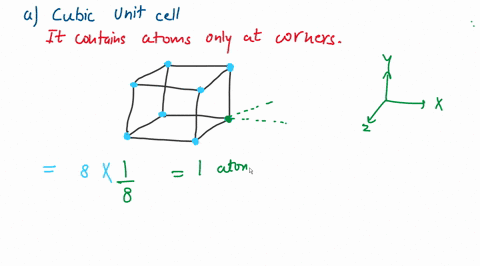 a) Cubic Unit cell
It contains atoms only at corners.
Y
X
Z
= 8 X 1/8 = 1 atom